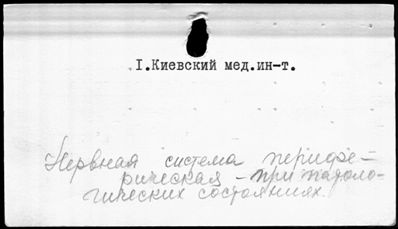 I.Киевский мед.ин-т.
Нервная система перифе-
рическая - при патоло-
гических состояниях.